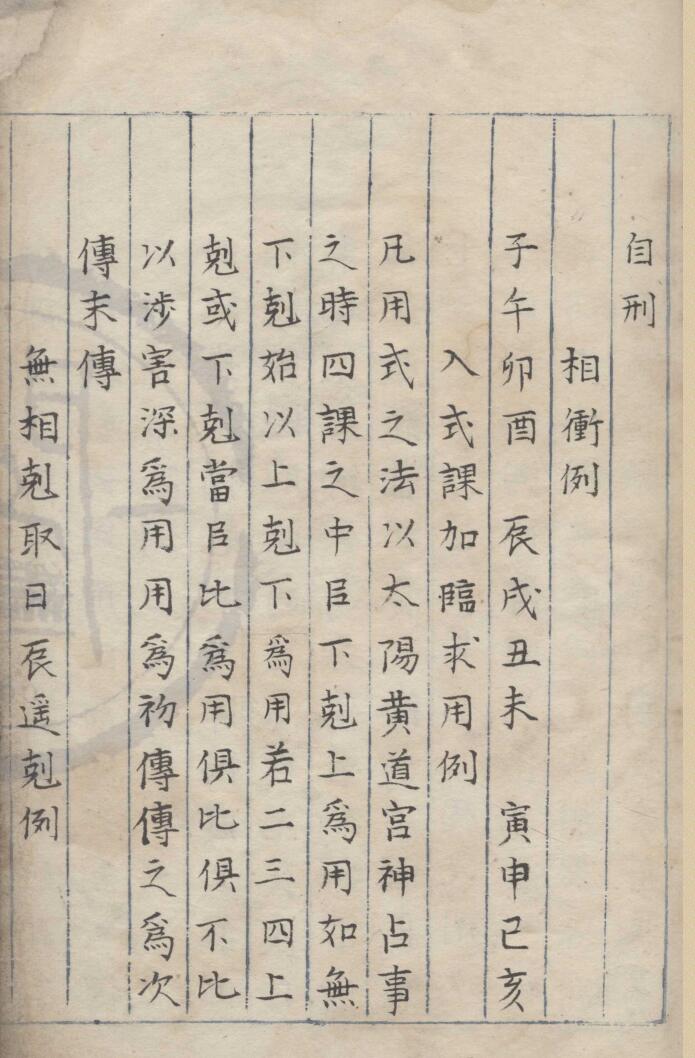 自刑
相衝例
子午卯酉　辰戌丑未　寅申巳亥
入式課加臨求用例
凡用式之法以太陽黄道宫神占事
之時四課之中㠯下剋上爲用如無
下剋始以上剋下爲用若二三四上
剋或下剋當㠯比爲用俱比俱不比
以涉害深爲用用爲初傳傳之爲次
傳末傳
無相剋取日辰遥剋例